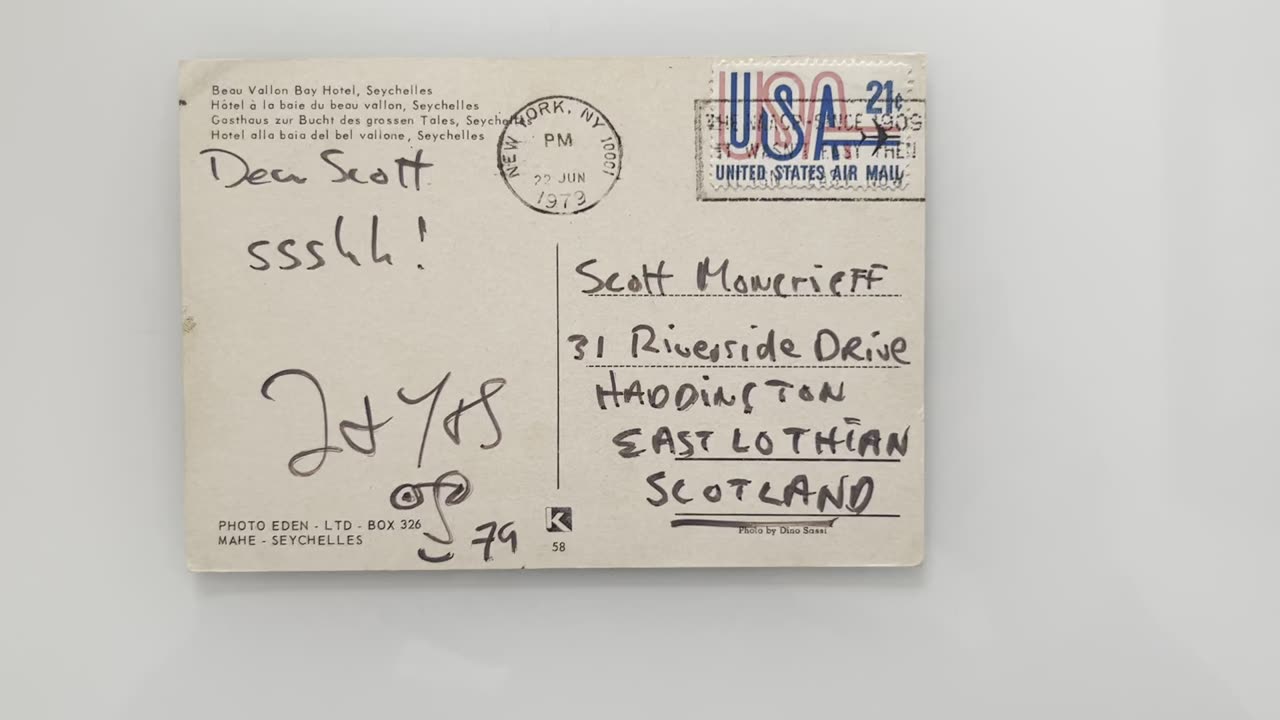 Beau Vallon Bay Hotel, Seychelles
Hôtel à la baie du beau vallon, Seychelles
Gasthaus zur Bucht des grossen Tales, Seychelles
Hotel alla baia del bel vallone, Seychelles
NEW YORK, NY 10001
PM
22 JUN
1979
USA 21c
UNITED STATES AIR MAIL
THE NAACP-SINCE 1909
IT WASN'T EASY THEN
Dear Scott
ssshh!
79
Scott Moncrieff
31 Riverside Drive
HADDINGTON
EAST LOTHIAN
SCOTLAND
PHOTO EDEN - LTD - BOX 326
MAHE - SEYCHELLES
K
58
Photo by Dino Sassi